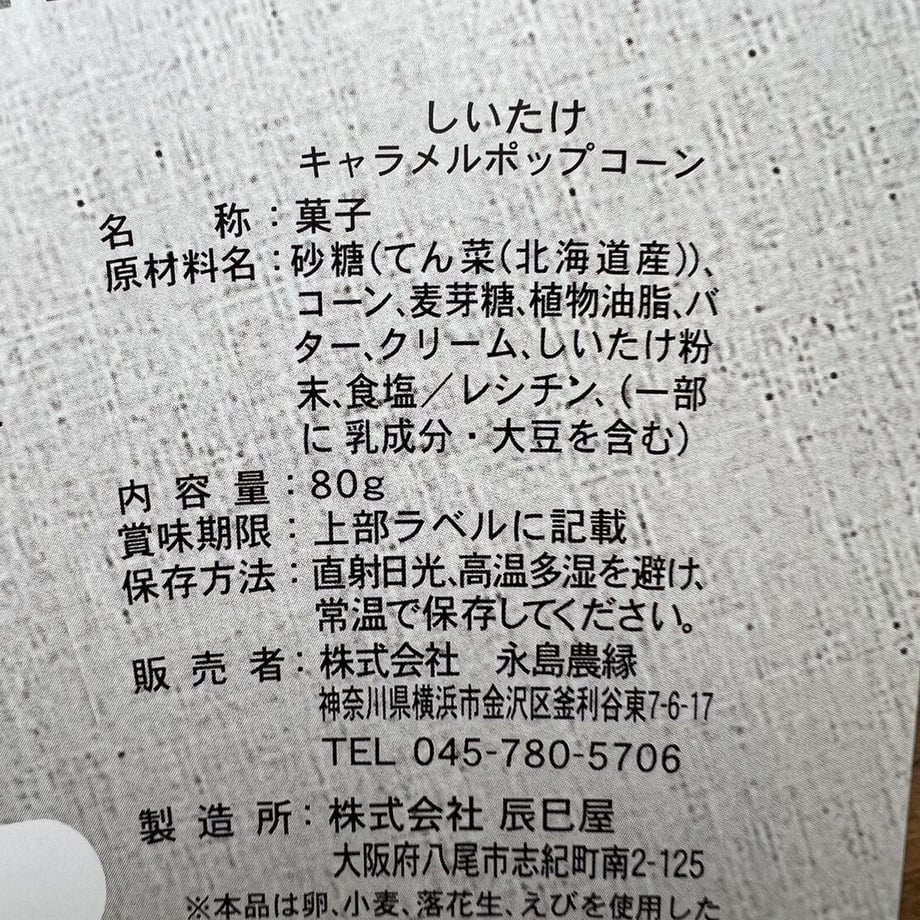 しいたけ
キャラメルポップコーン
名称：菓子
原材料名：砂糖(てん菜(北海道産))、
コーン、麦芽糖、植物油脂、バ
ター、クリーム、しいたけ粉
末、食塩／レシチン、(一部
に乳成分・大豆を含む)
内容量：80g
賞味期限：上部ラベルに記載
保存方法：直射日光、高温多湿を避け、
常温で保存してください。
販売者：株式会社 永島農縁
神奈川県横浜市金沢区釜利谷東7-6-17
TEL 045-780-5706
製造所：株式会社 辰巳屋
大阪府八尾市志紀町南2-125
※本品は卵、小麦、落花生、えびを使用した